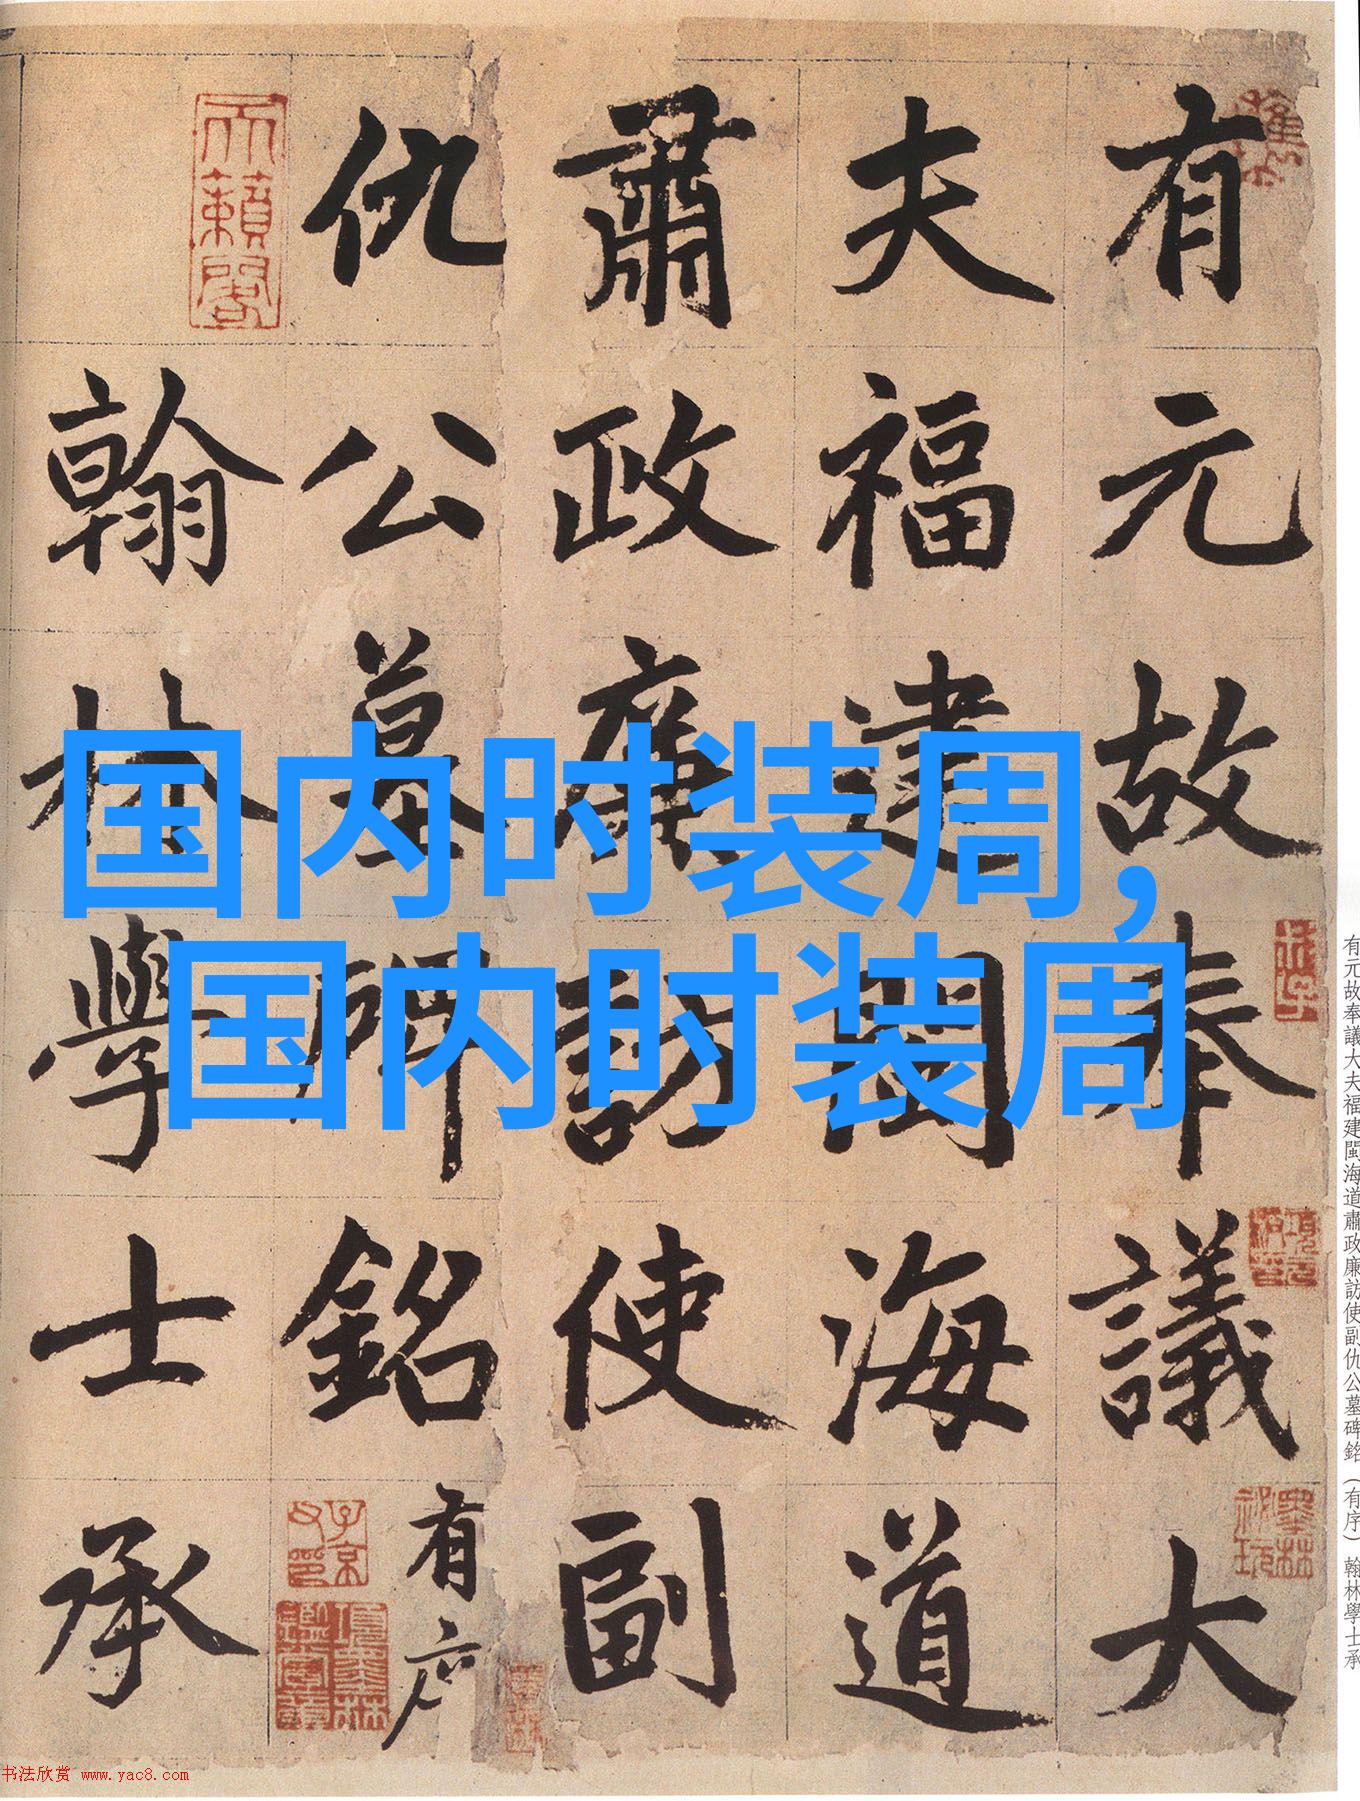 国内时装周，
国内时装周
有元故奉議大
夫福建閩海道
肅政廉訪使副
仇公墓碑銘
有序
翰林學士承
天籟閣
子京父印
項墨林鑑賞章
墨林祕玩
有元故奉議大夫福建閩海道肅政廉訪使副仇公墓碑銘（有序）翰林學士承
书法欣赏 www.yac8.com